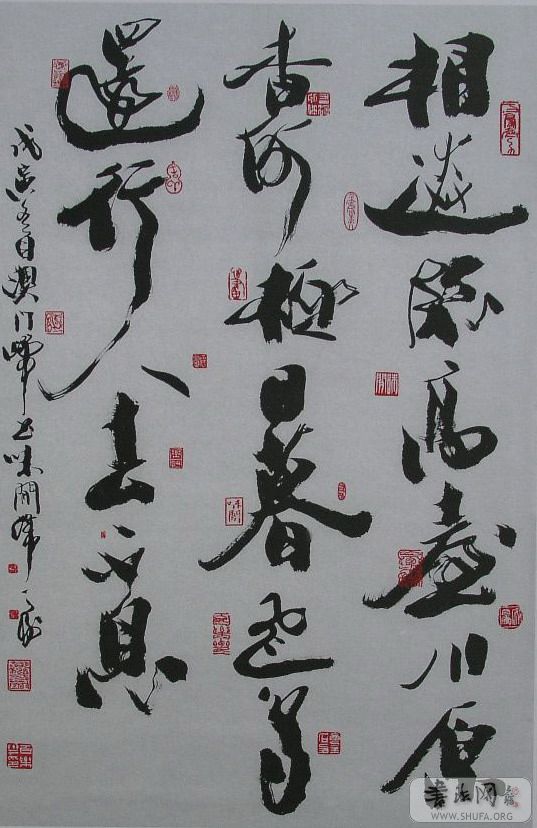 相送臨高臺川原
杳何極日暮飛鳥
還行人去不息
戊寅冬日
書法网
WWW.SHUFA.ORG